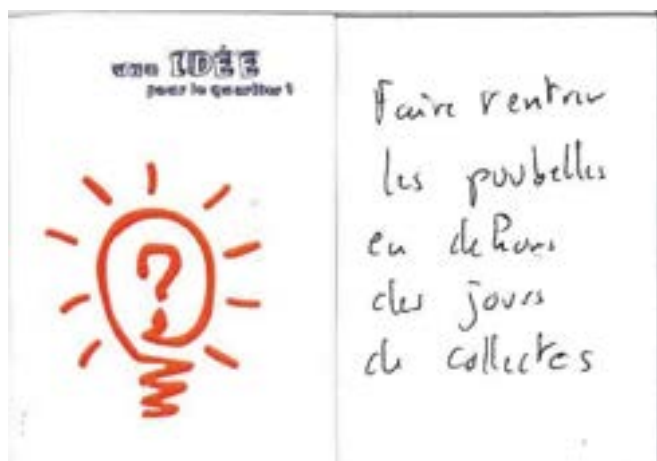 une IDÉE
pour le quartier ?
?
Faire rentrer
les poubelles
en dehors
des jours
de collectes